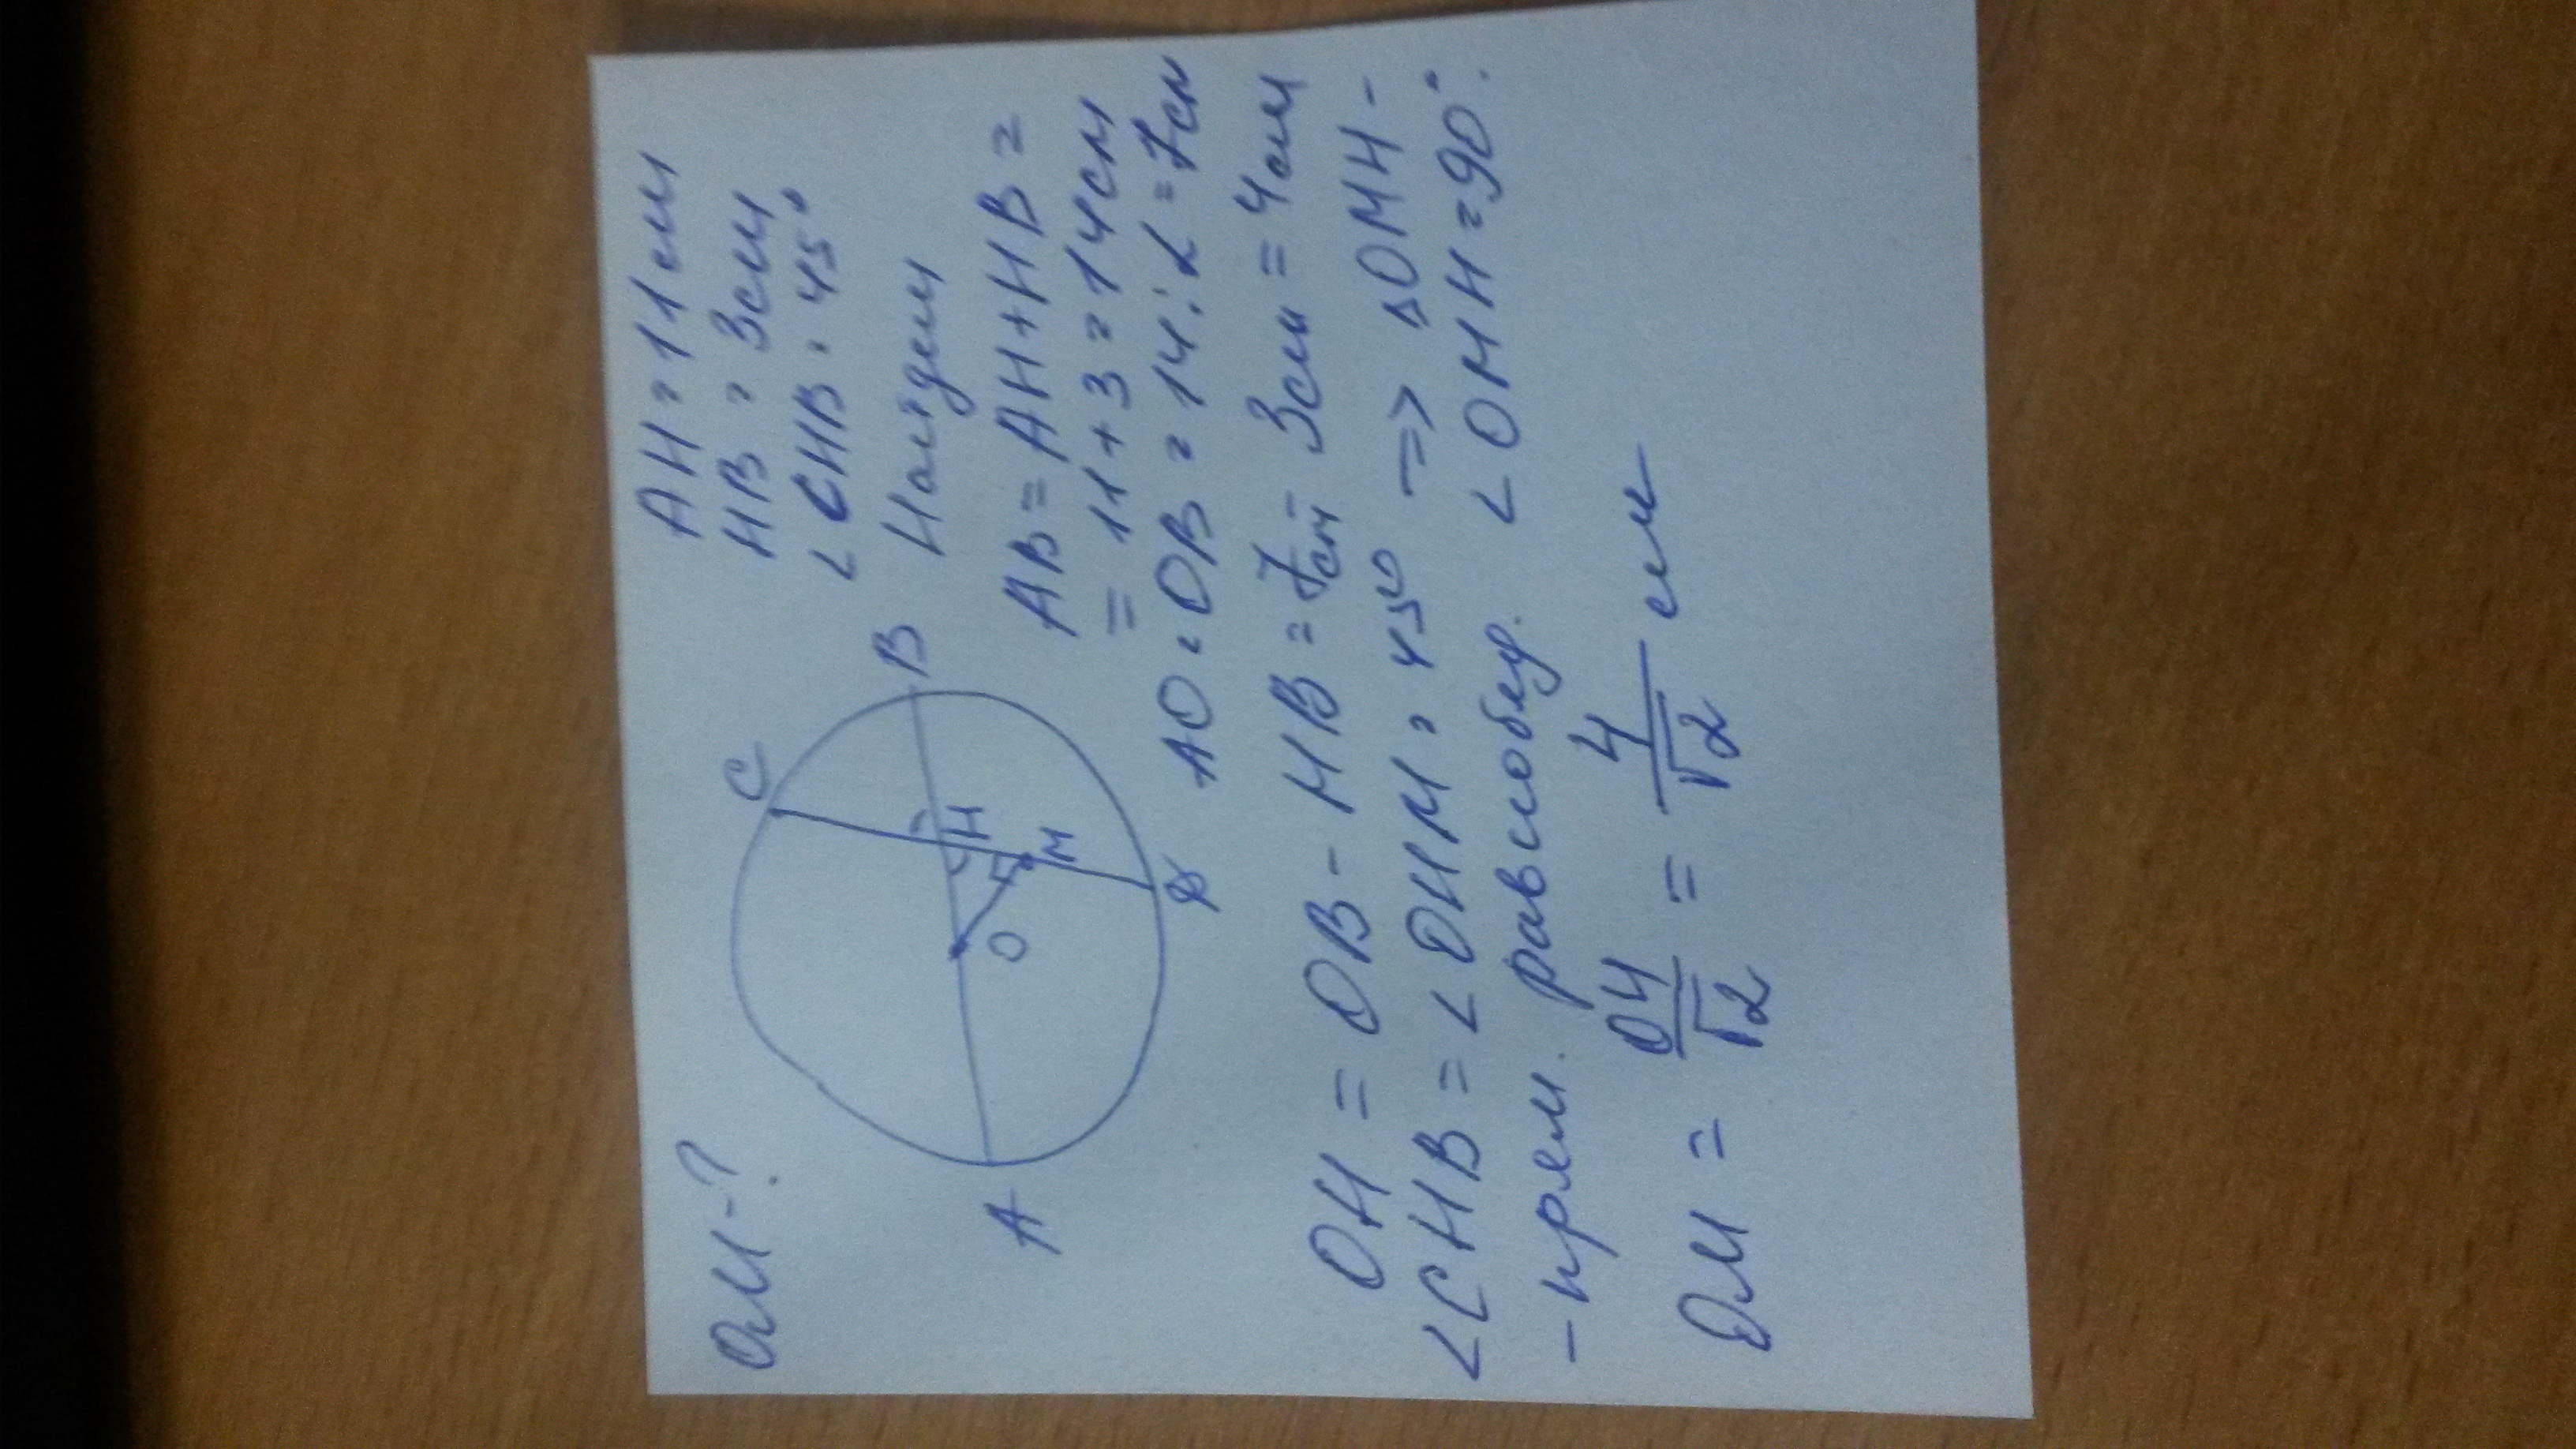 ОМ-?
AH = 11 см
HB = 3 см
∠CHB = 45°
C
B
H
M
O
A
D
Найдем
AB = AH + HB =
= 11 + 3 = 14 см
AO = OB = 14 : 2 = 7 см
OH = OB - HB = 7см - 3 см = 4 см
∠CHB = ∠OHM = 45° => △OMH -
- прям. равнобедр. ∠OMH = 90°.
OM = OH/√2 = 4/√2 см